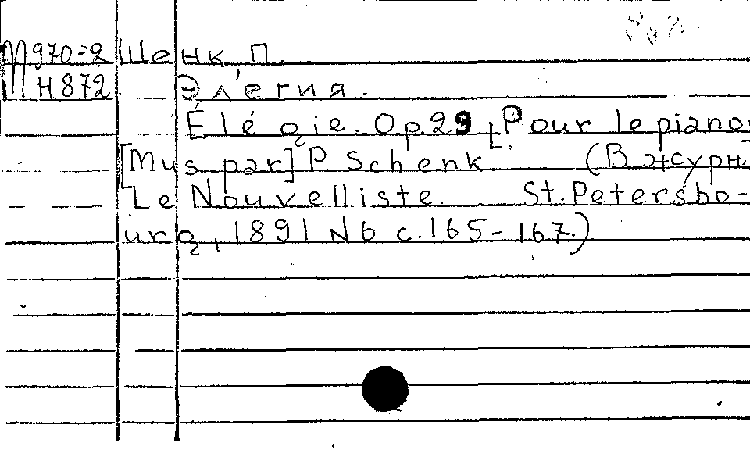 М970-2 Шенк П.
Н872 Элегия.
Elégie. Op.29, Pour le piano
[Mus par] P Schenk. (В журн.
Le Nouvelliste. St. Petersbo-
urg, 1891 N6 с. 165-167.)